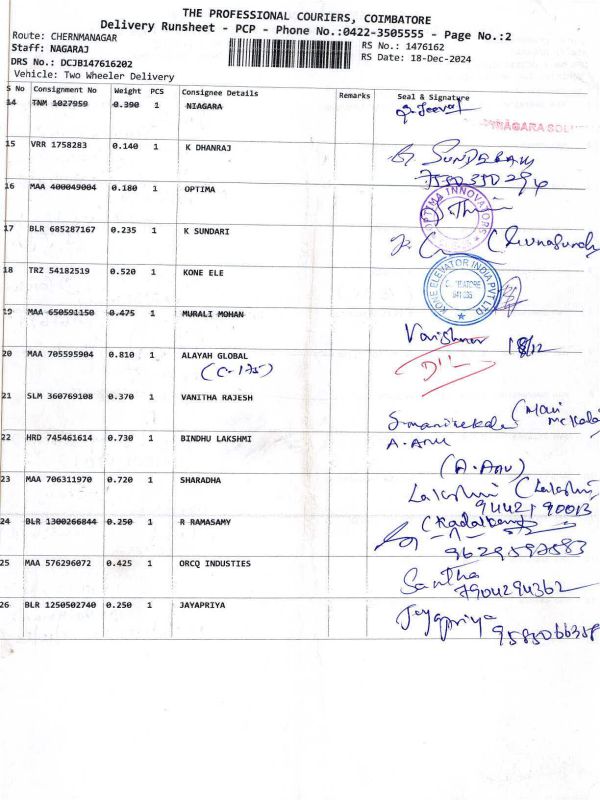 THE PROFESSIONAL COURIERS, COIMBATORE
Delivery Runsheet - PCP - Phone No.:0422-3505555 - Page No.:2
Route: CHERNMANAGAR
RS No.: 1476162
Staff: NAGARAJ
RS Date: 18-Dec-2024
DRS No.: DCJB147616202
Vehicle: Two Wheeler Delivery
S No Consignment No Weight PCS Consignee Details Remarks Seal & Signature
14 TNM 1027959 0.390 1 NIAGARA
15 VRR 1758283 0.140 1 K DHANRAJ
SUNDARAM
7550350294
16 MAA 400049004 0.180 1 OPTIMA
OPTIMA INNOVATORS
17 BLR 685287167 0.235 1 K SUNDARI
18 TRZ 54182519 0.520 1 KONE ELE
KONE ELEVATOR INDIA PVT LTD
19 MAA 650591150 0.475 1 MURALI MOHAN
Vaishnav 18/12
20 MAA 705595904 0.810 1 ALAYAH GLOBAL
(C-175)
21 SLM 360769108 0.370 1 VANITHA RAJESH
22 HRD 745461614 0.730 1 BINDHU LAKSHMI
A. Anu
(A. Anu)
23 MAA 706311970 0.720 1 SHARADHA
Lakshmi (Lakshmi
9442190013
24 BLR 1300266844 0.250 1 R RAMASAMY
9629597583
25 MAA 576296072 0.425 1 ORCQ INDUSTIES
Santha
7904294362
26 BLR 1250502740 0.250 1 JAYAPRIYA
Jayapriya
9585066358